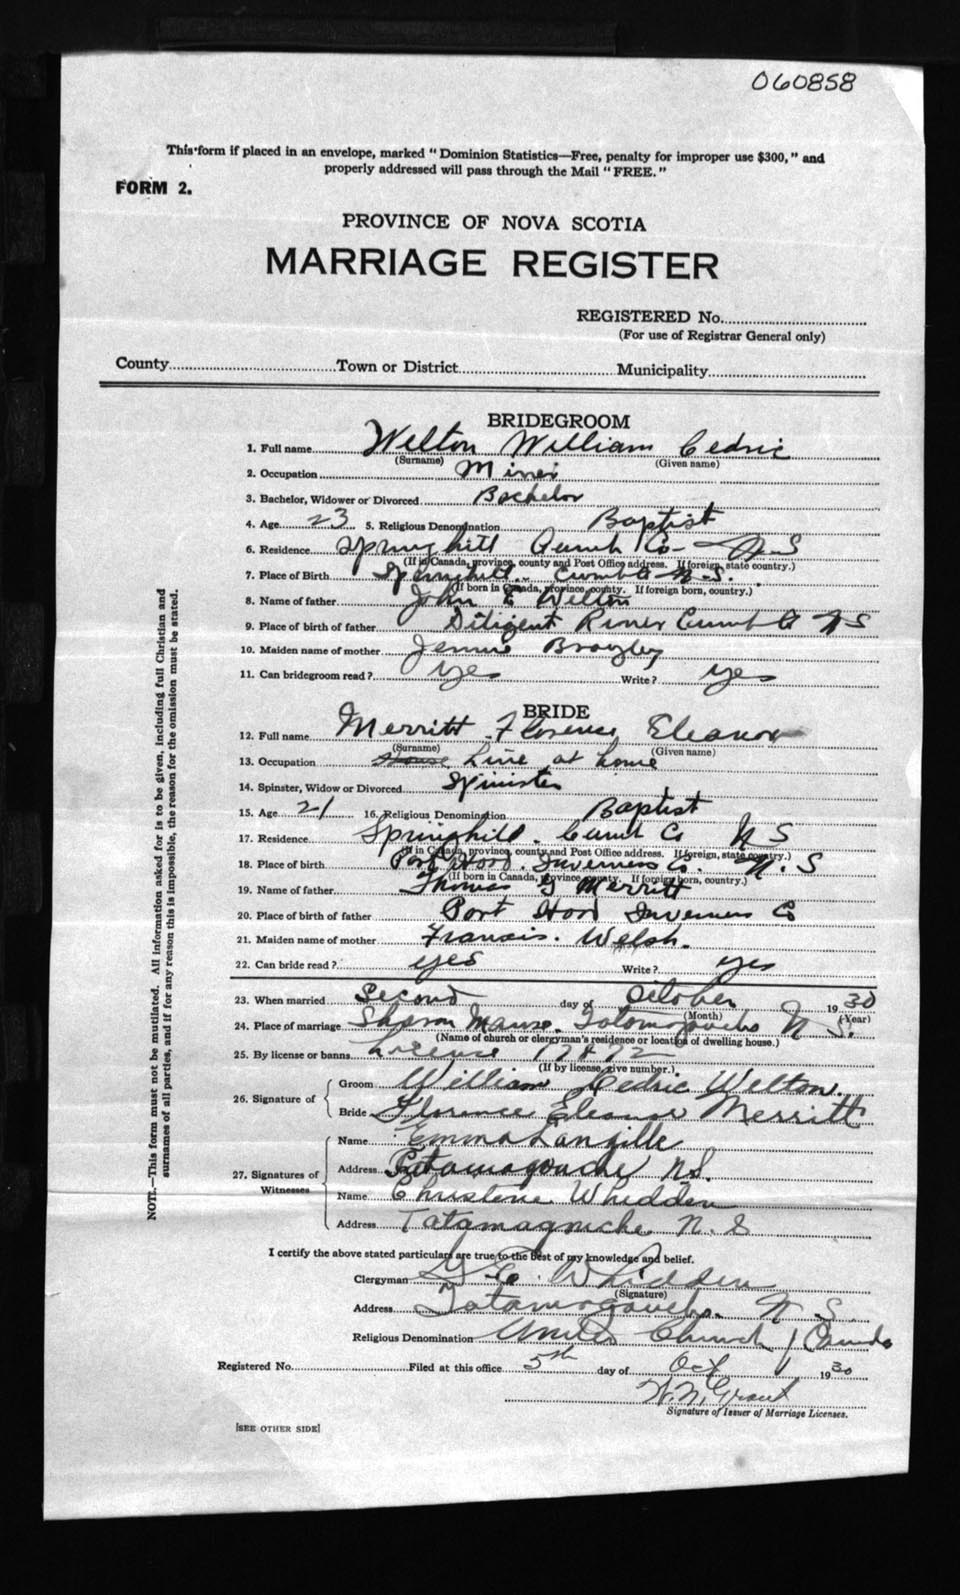 060858
This form if placed in an envelope, marked "Dominion Statistics—Free, penalty for improper use $300," and
properly addressed will pass through the Mail "FREE."
FORM 2.
PROVINCE OF NOVA SCOTIA
MARRIAGE REGISTER
REGISTERED No.
(For use of Registrar General only)
County Town or District Municipality
BRIDEGROOM
1. Full name Welton William Cedric
(Surname) (Given name)
2. Occupation Miner
3. Bachelor, Widower or Divorced Bachelor
4. Age 23 5. Religious Denomination Baptist
6. Residence Springhill Cumb Co- N S
(If in Canada, province, county and Post Office address. If foreign, state country.)
7. Place of Birth Springhill. Cumb Co N.S.
(If born in Canada, province, county. If foreign born, country.)
8. Name of father John E Welton
9. Place of birth of father Diligent River Cumb Co N S
10. Maiden name of mother Jennie
11. Can bridegroom read? yes Write? yes
BRIDE
12. Full name Merritt Florence Eleanor
(Surname) (Given name)
13. Occupation House Live at home
14. Spinster, Widow or Divorced Spinster
15. Age 21 16. Religious Denomination Baptist
17. Residence Springhill. Cumb Co N S
(If in Canada, province, county and Post Office address. If foreign, state country.)
18. Place of birth Port Hood. Inverness Co. N. S
(If born in Canada, province, county. If foreign born, country.)
19. Name of father Thomas Merritt
20. Place of birth of father Port Hood Inverness Co
21. Maiden name of mother Francis. Welsh.
22. Can bride read? yes Write? yes
23. When married Second day of October 1930
(Month) (Year)
24. Place of marriage Sharon Manse. Tatamagouche N S.
(Name of church or clergyman's residence or location of dwelling house.)
25. By license or banns License 17872
(If by license, give number.)
26. Signature of { Groom William Cedric Welton.
Bride Florence Eleanor Merritt
27. Signatures of Witnesses { Name Emma Langille
Address Tatamagouche NS.
Name Christene Whidden
Address Tatamagouche N. S
I certify the above stated particulars are true to the best of my knowledge and belief.
Clergyman Whidden
(Signature)
Address Tatamagouche. N S.
Religious Denomination United Church of Canada
Registered No. Filed at this office 5th day of Oct 1930
Grant
Signature of Issuer of Marriage Licenses.
[SEE OTHER SIDE]
NOTE.—This form must not be mutilated. All information asked for is to be given, including full Christian and
surnames of all parties, and if for any reason this is impossible, the reason for the omission must be stated.